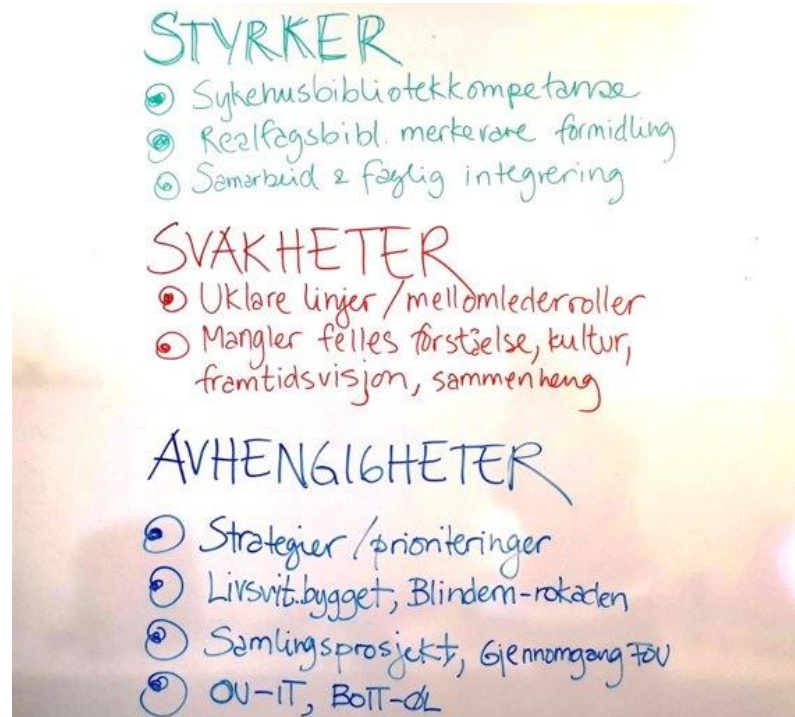 STYRKER
Sykehusbibliotekkompetanse
Realfagsbibl. merkevare formidling
Samarbeid & faglig integrering
SVAKHETER
Uklare linjer/mellomlederroller
Mangler felles forståelse, kultur,
framtidsvisjon, sammenheng
AVHENGIGHETER
Strategier/prioriteringer
Livsvit.bygget, Blindern-rokaden
Samlingsprosjekt, Gjennomgang FOU
OU-IT, BOTT-ØL